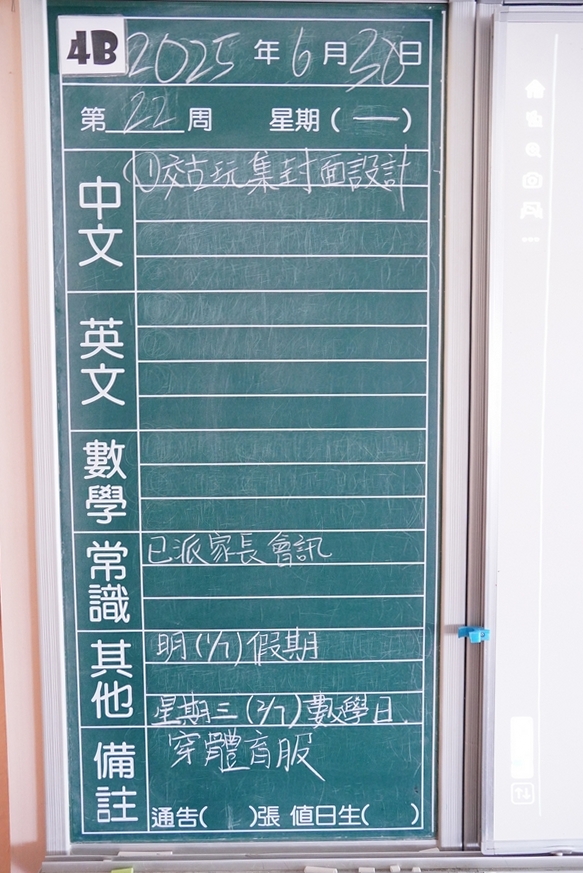 4B 2025 年 6 月 30 日
第 22 周 星期 ( 一 )
中文
①交古玩集封面設計
英文
數學
常識
已派家長會訊
其他
明(1/7)假期
星期三(2/7)數學日.
備註
穿體育服
通告( )張 值日生( )